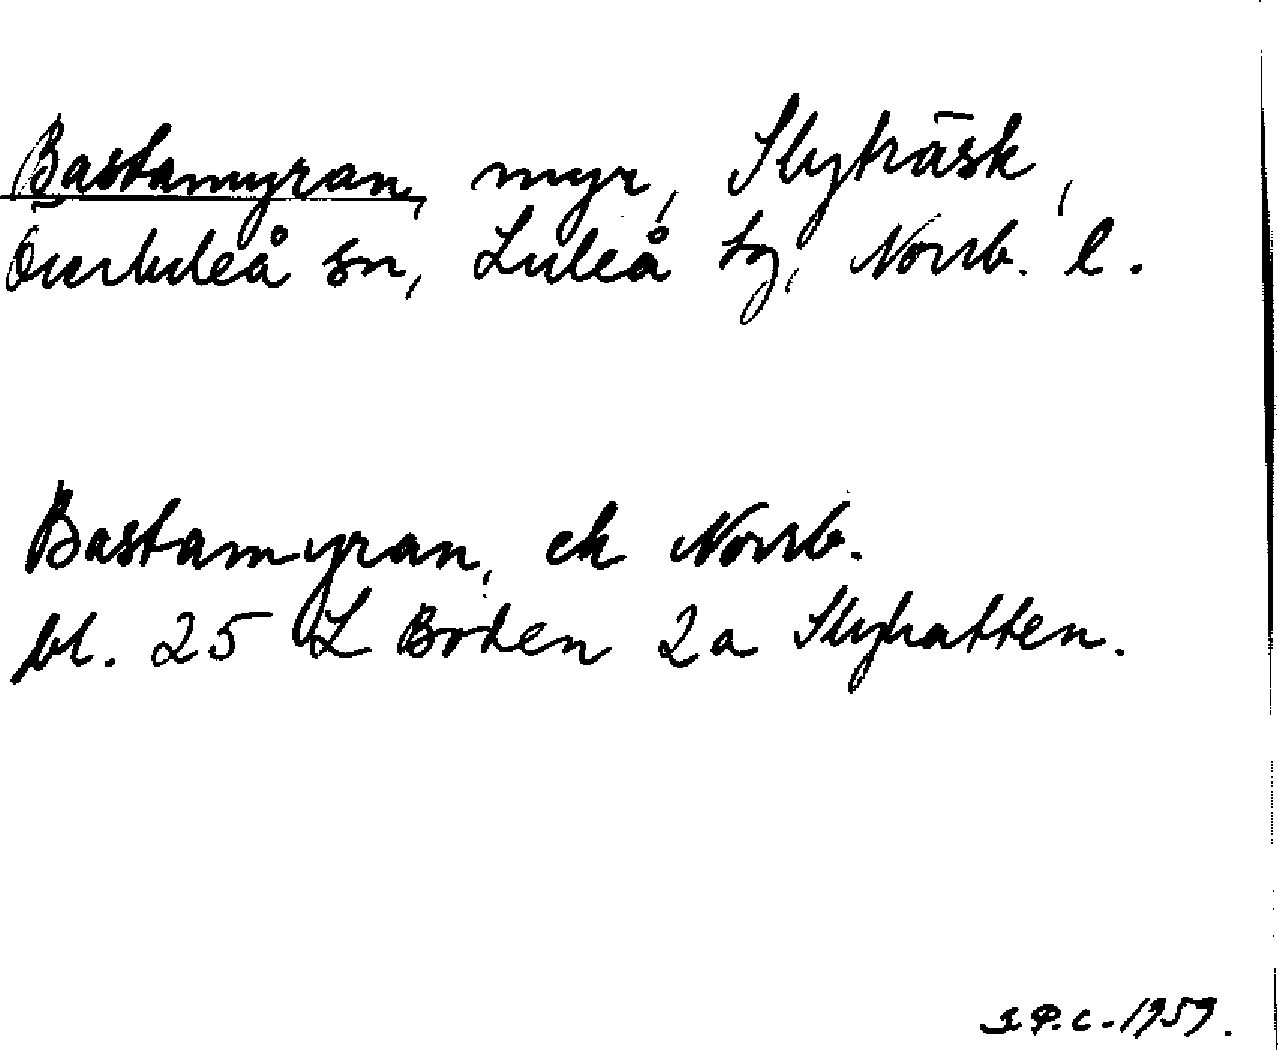 Bastamyran, myr, Slyträsk,
Överluleå sn, Luleå tg, Norrb. l.
Bastamyran, ek Norrb.
bl. 25 L Boden 2a Slyhatten.
J.P.C. 1959.